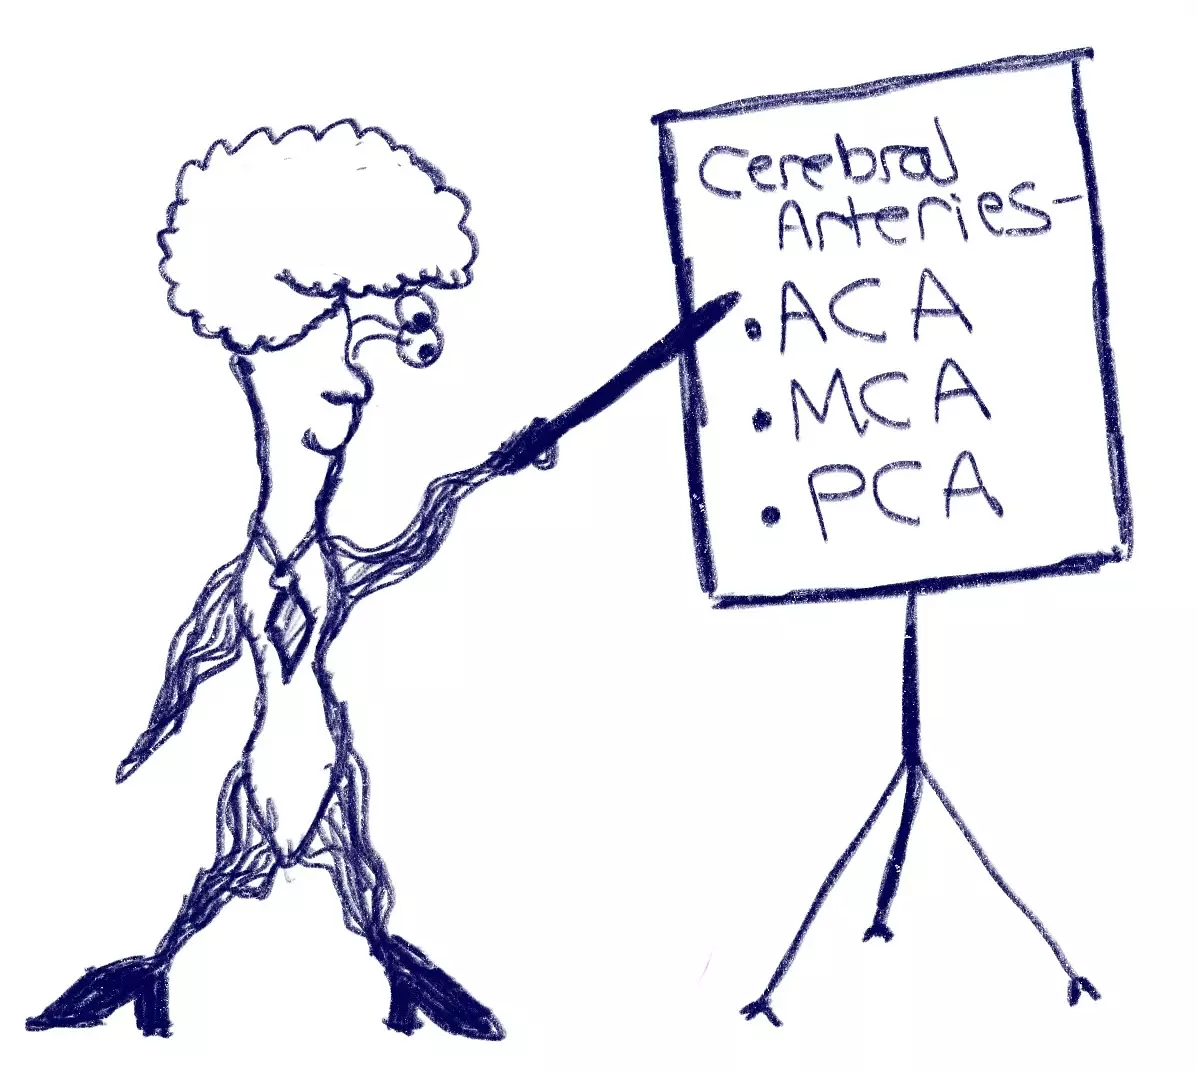 Cerebral
Arteries-
• ACA
• MCA
• PCA